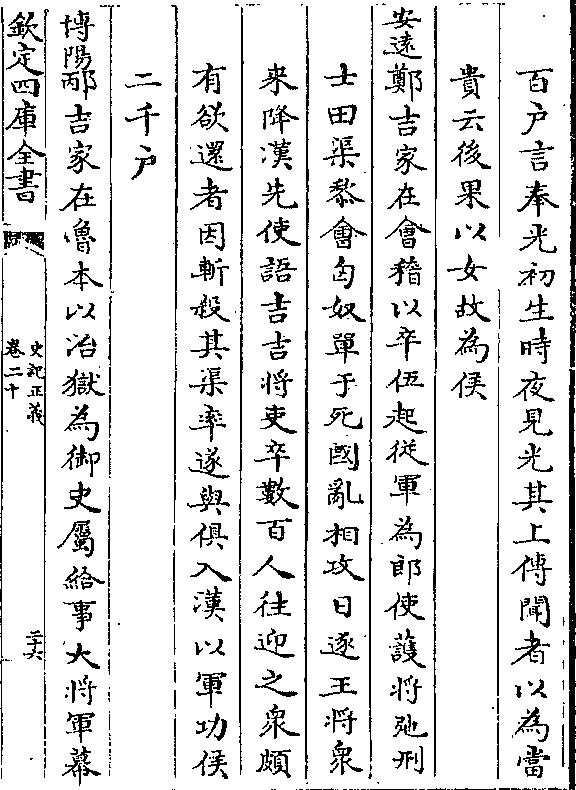 百户言奉光初生時夜見光其上傳聞者以為當
貴云後果以女故為侯
安遠鄭吉家在會稽以卒伍起從軍為郎使䕶將弛刑
士田渠黎會匈奴單于死國亂相攻日逐王將衆
來降漢先使語吉吉將吏卒數百人往迎之衆頗
有欲還者因斬殺其渠率遂與俱入漢以軍功侯
二千户
博陽邴吉家在魯本以治獄為御史屬給事大將軍幕
欽定四庫全書
史記正義
卷二十
二十六